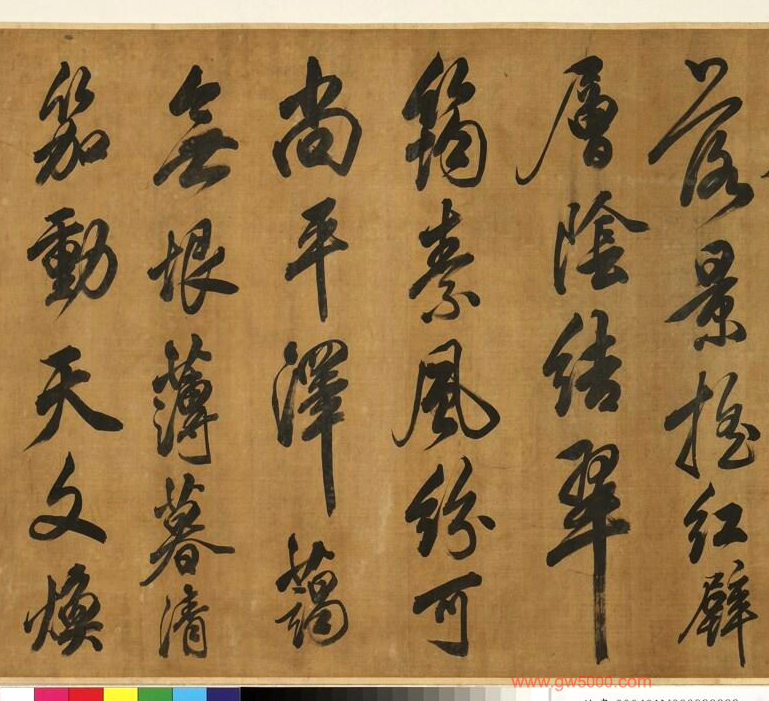 落景搖紅壁
層陰結翠
筠素風紛可
尚平澤藹
無垠薄暮清
笳動天文煥
www.gw5000.com